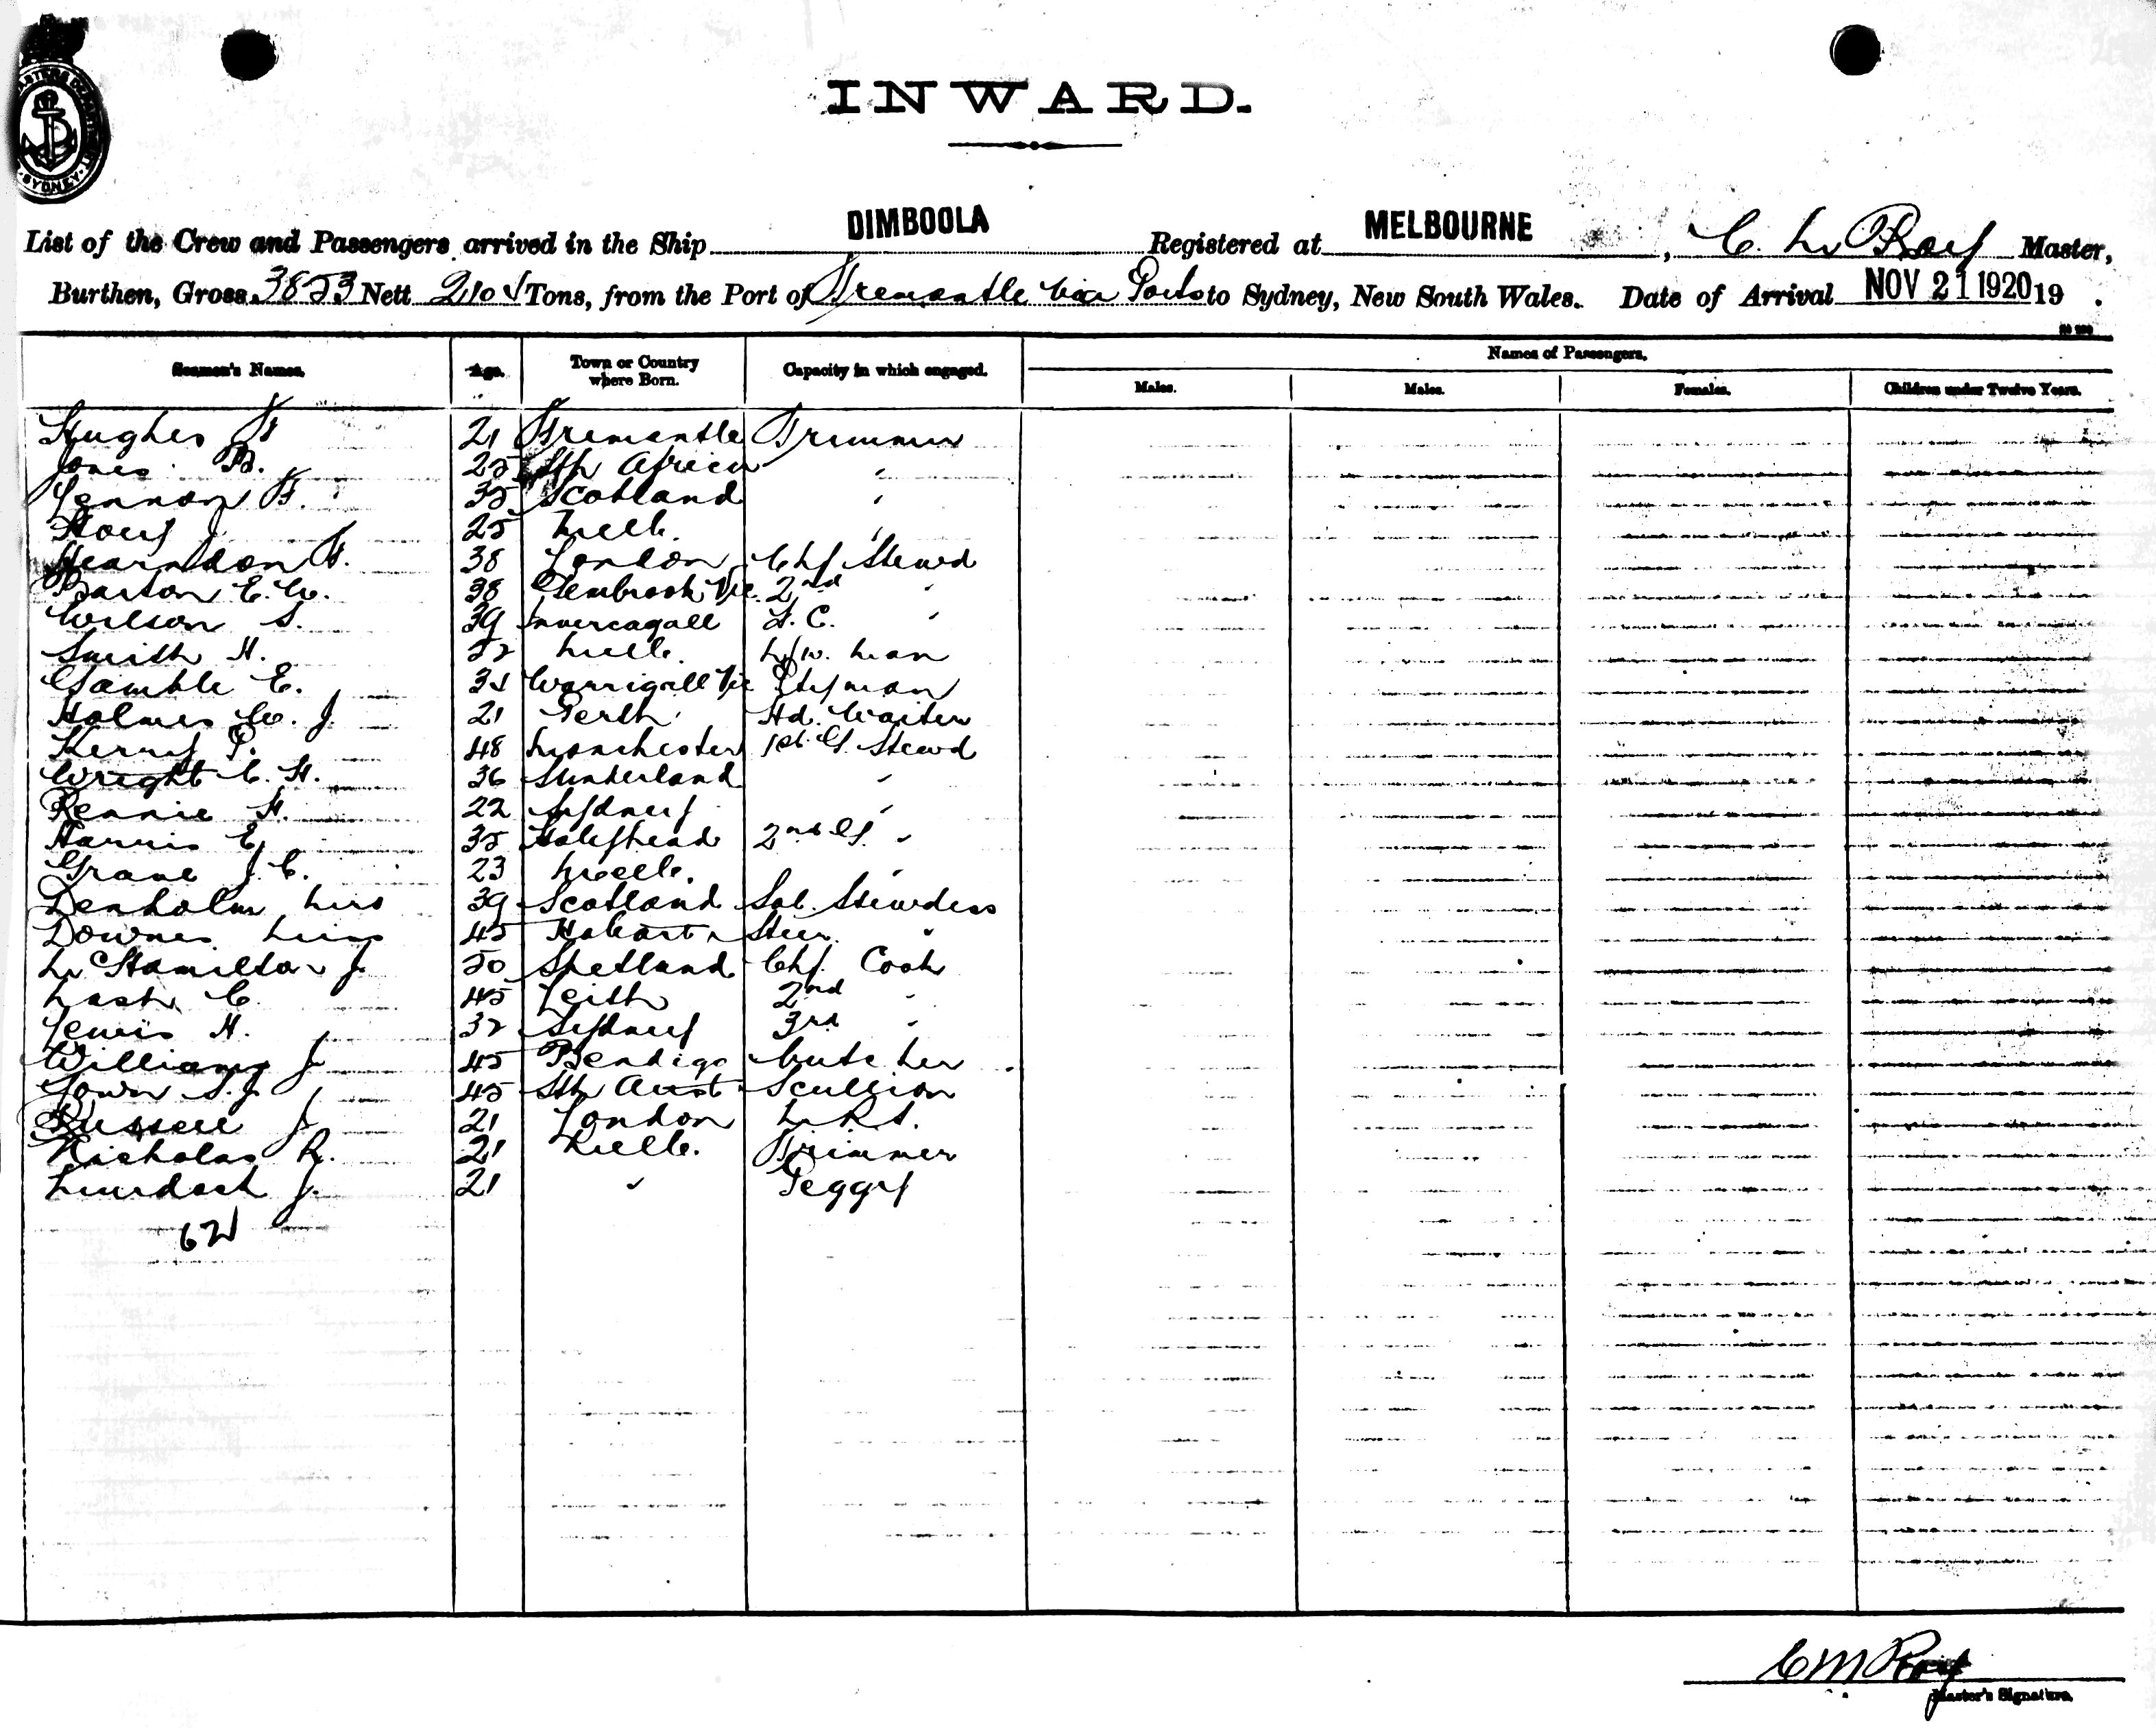 INWARD.
SYDNEY
List of the Crew and Passengers arrived in the Ship DIMBOOLA Registered at MELBOURNE, C. M. Roy Master,
Burthen, Gross 3853 Nett 2104 Tons, from the Port of Fremantle via Ports to Sydney, New South Wales. Date of Arrival NOV 21 1920 19 .
Seamen's Names. Age. Town or Country where Born. Capacity in which engaged. Names of Passengers.
Males. Males. Females. Children under Twelve Years.
Hughes F 21 Fremantle Trimmer
Jones B. 25 Sth Africa "
Lennon F. 35 Scotland "
Hoey J 25 Melb. "
Hearndon F. 38 London Chf Stewd
Barton E. W. 38 Glembrook Vic. 2nd "
Wilson S. 39 Invercagall F. C. "
Smith H. 52 Melb. M/w. Man
Gamble E. 34 Warrigall Vic Ptyman
Holmes W. J. 21 Perth Hd. Waiter
Kerry P. 48 Manchester 1st Cl. Stewd
Wright C. H. 36 Sunderland "
Rennie H. 22 Sydney "
Harris E. 35 Holyhead 2nd Cl. "
Grane J. C. 23 Melb. "
Denholm Mrs 39 Scotland Sal. Stewdess
Downes Miss 45 Hobart Steer. "
McHamilton J 50 Shetland Chf. Cook
Mash C. 45 Leith 2nd "
Lewis H. 32 Sydney 3rd "
Williams J 45 Bendigo Butcher
Gown S. J. 45 Sth Aust Scullion
Russell J 21 London M. R. S.
Nicholas R. 21 Melb. Trimmer
Murdoch J. 21 " Peggy
62
C M Roy
Master's Signature.